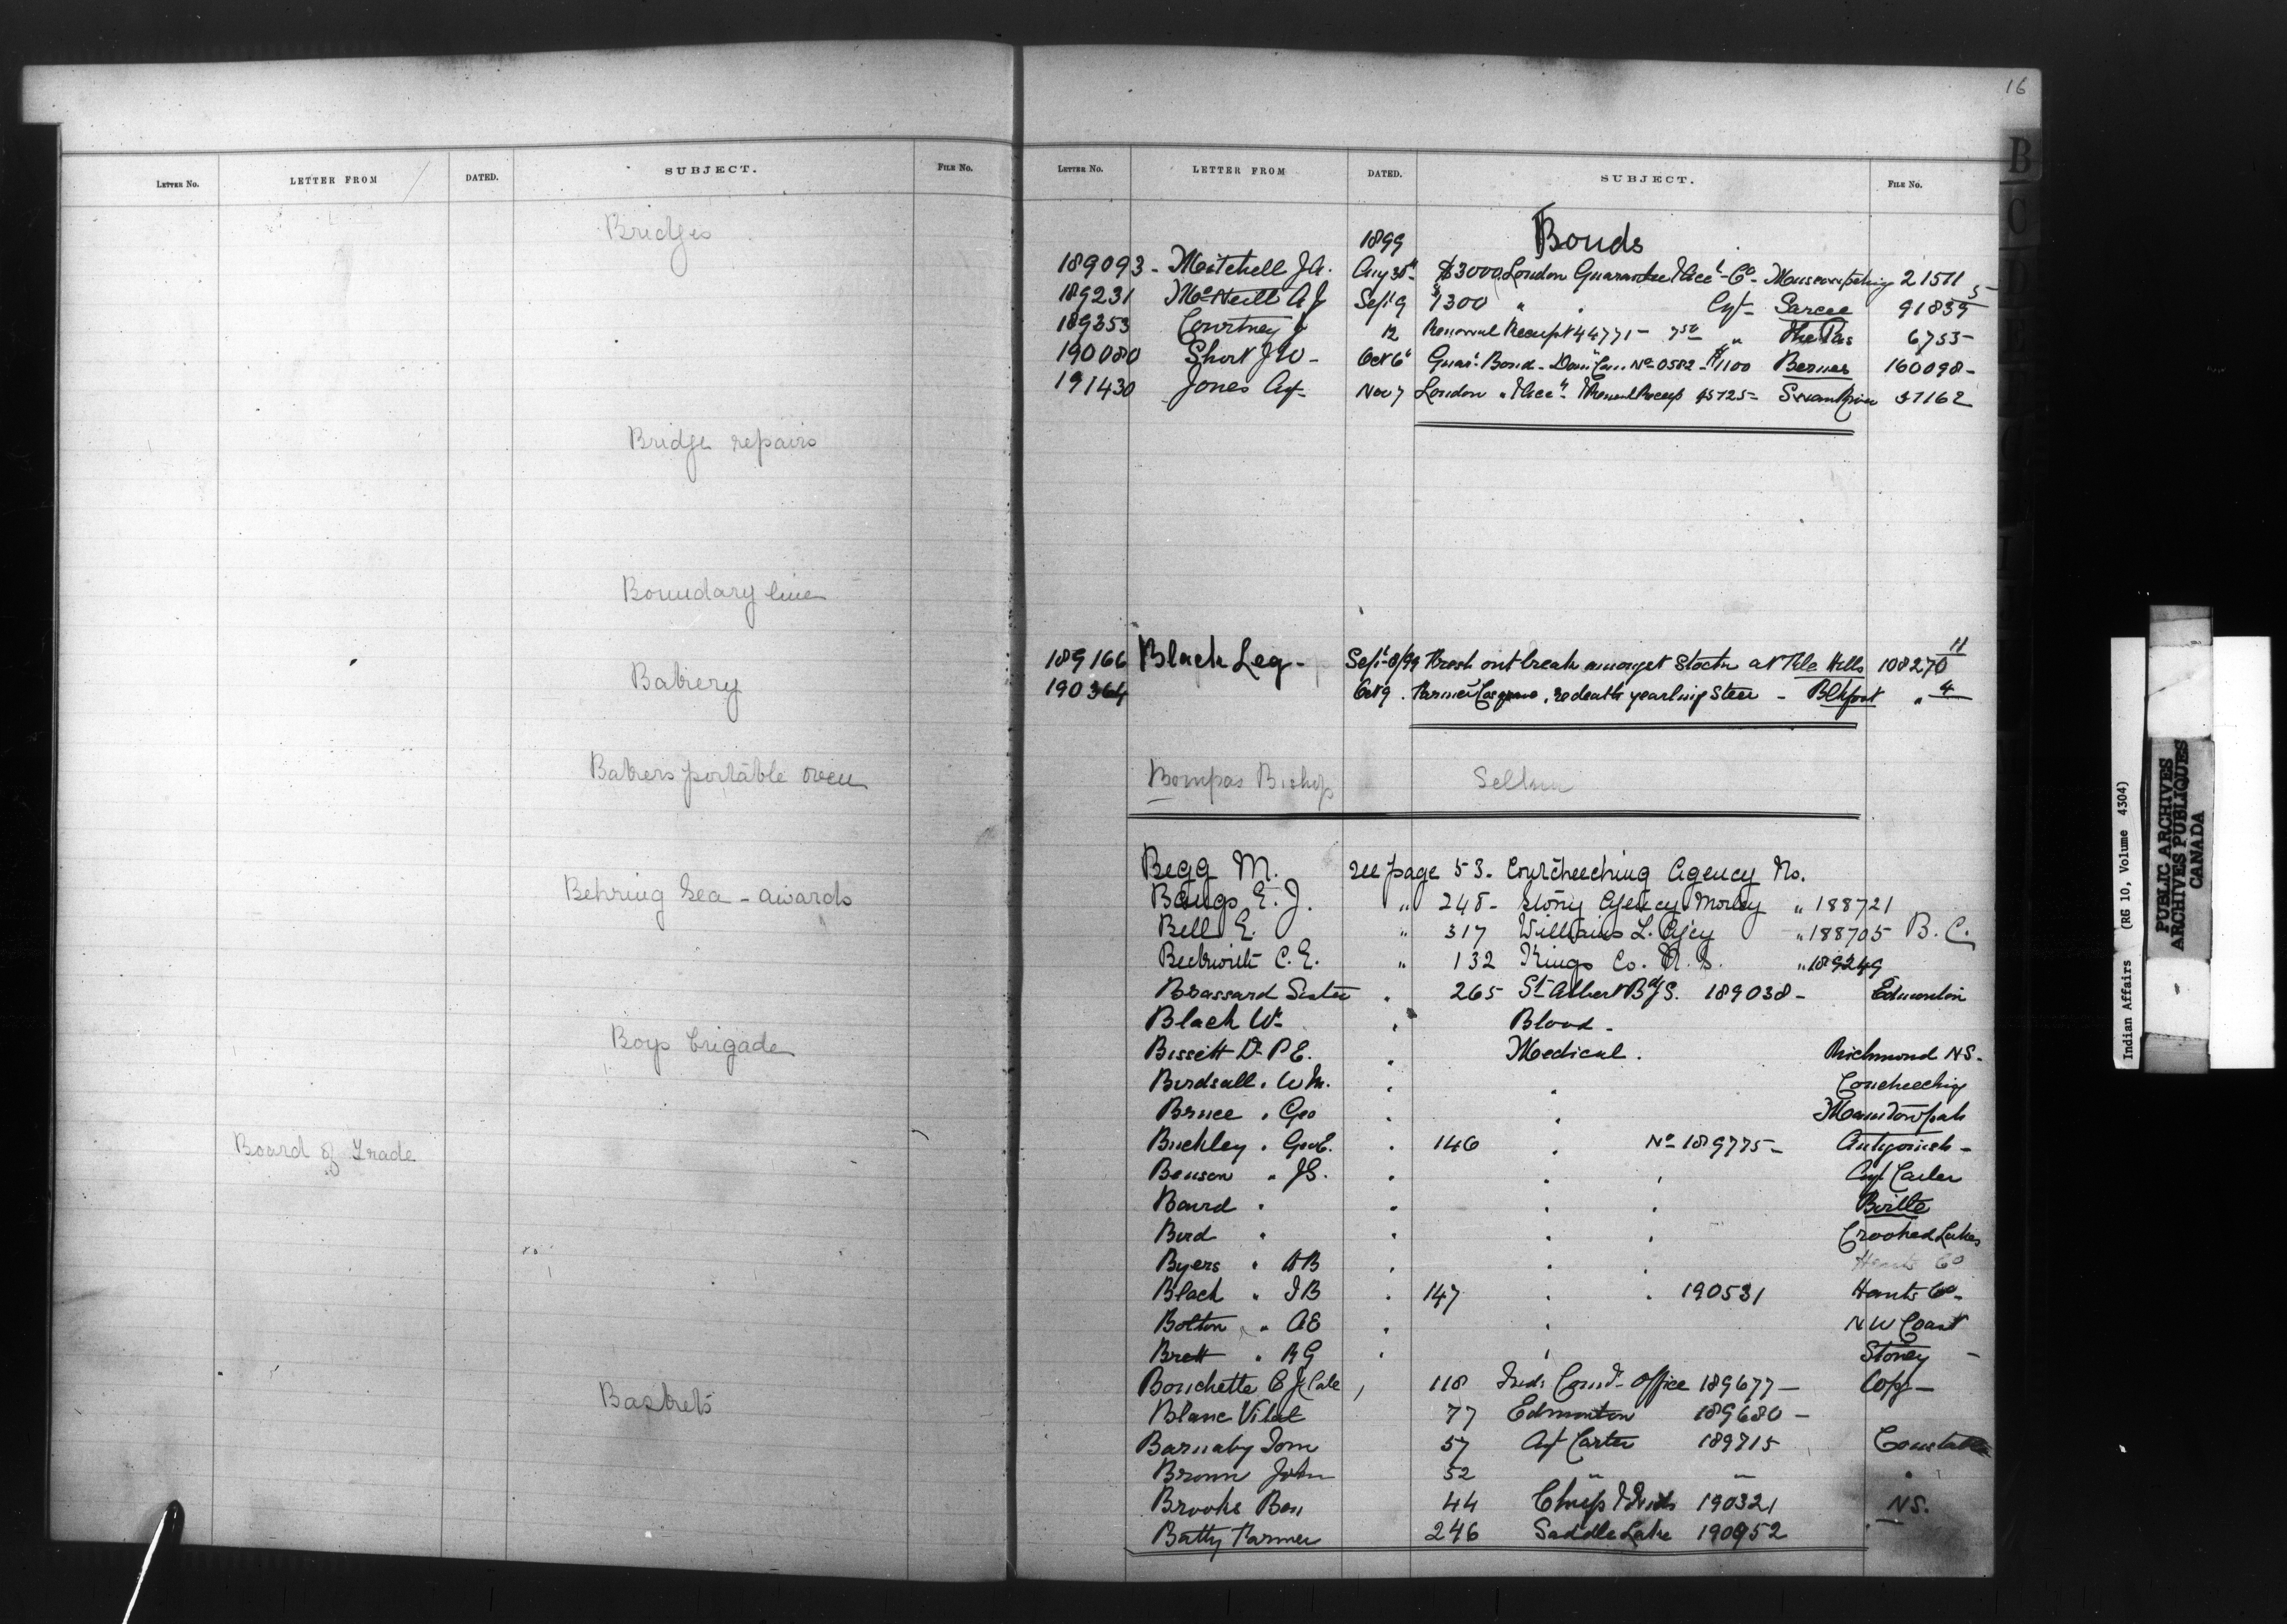 LETTER No. LETTER FROM DATED. SUBJECT. FILE No.
Bridges
Bridge repairs
Boundary line
Bakery
Bakers portable oven
Behring Sea - awards
Boys brigade
Board of Trade
Baskets
16
LETTER No. LETTER FROM DATED. SUBJECT. FILE No.
1899 Bonds
189093 - Mitchell J.A. Aug 30th $3000 London Guarantee & Acct Co - 21511
189231 McNeill A J Sept 9 $1300 " " Agt - Sarcee 91839 5
189353 Courtney J 12 Renewal Receipt 44771 - 750 " The Pas 6755 -
190080 Short J W - Oct 6" Guar. Bond - No 0582 - $1100 Berens 160098 -
191430 Jones Agt - Nov 7 London & Acct Renewal Receipt 45725 - Swan River 37162
189166 Black Leg - Sept 8/99 Fresh outbreak amongst Stock at File Hills 108270 11
190364 Oct 9 . Farmer Cosgrave, re death yearling Steer - Blkfoot " 4
Bompas Bishop Selkirk
Begg M. see page 53. Coutcheeching Agency No.
Bangs E. J. " 248 - Stony Agency Morley " 188721
Bell E. " 317 Williams L. Agcy " 188705 B. C.
Beckwith C. E. " 132 Kings Co. N. S. " 189249
Brassard Sister " 265 St Albert Bdg S. 189038 - Edmonton
Black Wm " Blood -
Bissett Dr P E. " Medical . Richmond N S -
Birdsall " W M. " " Coucheeching
Bruce " Geo " " Manitowpah
Buckley " Geo E. " 146 " No 189775 - Antigonish -
Benson " J S. " " " Agt Carter
Baird " " " " Birtle
Bird " " " " Crooked Lakes
Byers " D B " " " Hants Co
Black " J B " 147 " " 190531 Hants Co -
Bolton " A E " " N W Coast
Brett " R G " " Stoney -
Bouchette C J Cale " 118 Inds Comr - Office 189677 - Copy -
Blanc Vital 77 Edmonton 189680 -
Barnaby Tom 57 Agt Carter 189715 Constable
Brown John 52 " " "
Brooks Ben 44 190321 N S.
Batty Farmer 246 Saddle Lake 190952
B
C
Indian Affairs (RG 10, Volume 4304)
PUBLIC ARCHIVES
ARCHIVES PUBLIQUES
CANADA